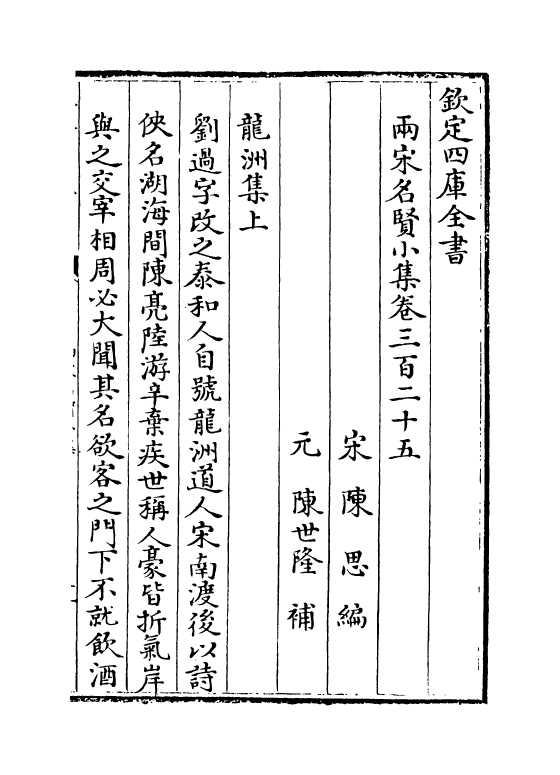 欽定四庫全書
兩宋名賢小集卷三百二十五
宋陳思編
元陳世隆補
龍洲集上
劉過字改之泰和人自號龍洲道人宋南渡後以詩
俠名湖海間陳亮陸游辛棄疾世稱人豪皆折氣岸
與之交宰相周必大聞其名欲客之門下不就飲酒